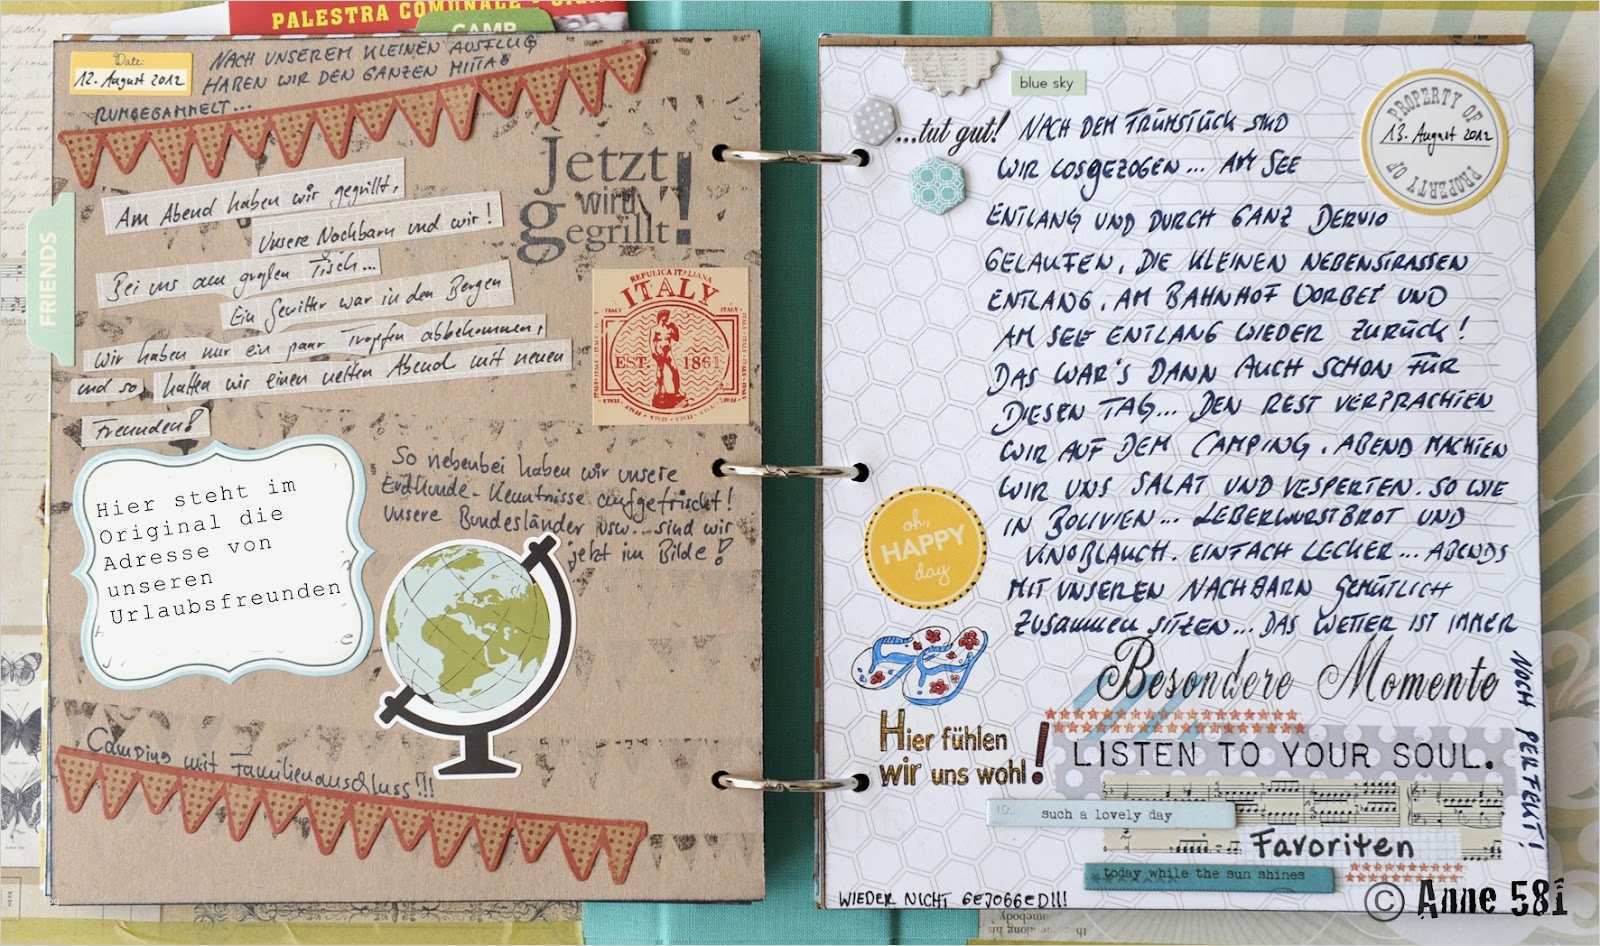 PALESTRA COMUNALE
CAMP
Date:
12. August 2012
NACH UNSEREM KLEINEN AUSFLUG
HABEN WIR DEN GANZEN MITTAG
RUMGEGAMMELT...
Jetzt
wird
gegrillt!
Am Abend haben wir gegrillt,
Unsere Nachbarn und wir!
Bei uns am großen Tisch...
Ein Gewitter war in den Bergen
wir haben nur ein paar Tropfen abbekommen,
und so hatten wir einen netten Abend mit neuen
Freunden!
FRIENDS
REPUBLICA ITALIANA
ITALY
EST. 1861
Hier steht im
Original die
Adresse von
unseren
Urlaubsfreunden
So nebenbei haben wir unsere
Erdkunde-Kenntnisse aufgefrischt!
Unsere Bundesländer usw... sind wir
jetzt im Bilde!
Camping mit Familienanschluss!!!
blue sky
PROPERTY OF
13. August 2012
PROPERTY OF
...tut gut! NACH DEM FRÜHSTÜCK SIND
WIR LOSGEZOGEN... AM SEE
ENTLANG UND DURCH GANZ DERVIO
GELAUFEN. DIE KLEINEN NEBENSTRASSEN
ENTLANG. AM BAHNHOF VORBEI UND
AM SEE ENTLANG WIEDER ZURÜCK!
DAS WAR'S DANN AUCH SCHON FÜR
DIESEN TAG... DEN REST VERBRACHTEN
WIR AUF DEM CAMPING. ABEND MACHTEN
WIR UNS SALAT UND VESPERTEN. SO WIE
IN BOLIVIEN... LEBERWURSTBROT UND
KNOBLAUCH. EINFACH LECKER... ABENDS
MIT UNSEREN NACHBARN GEMÜTLICH
ZUSAMMEN SITZEN... DAS WETTER IST IMMER
NOCH PERFEKT!
oh,
HAPPY
day
Besondere Momente
Hier fühlen
wir uns wohl!
LISTEN TO YOUR SOUL.
such a lovely day
Favoriten
today while the sun shines
WIEDER NICHT GEJOGGED!!!
© Anne 581